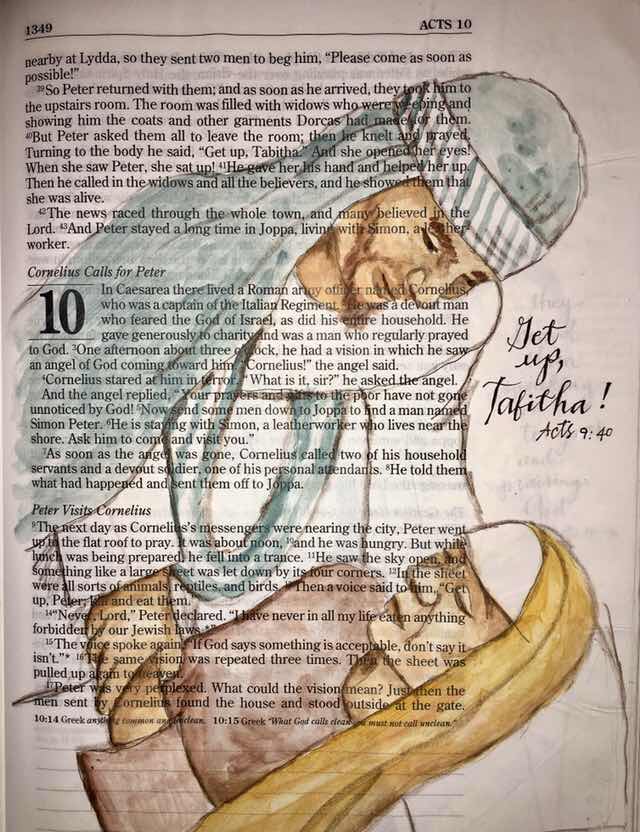 1349
ACTS 10
nearby at Lydda, so they sent two men to beg him, “Please come as soon as
possible!”
39So Peter returned with them; and as soon as he arrived, they took him to
the upstairs room. The room was filled with widows who were weeping and
showing him the coats and other garments Dorcas had made for them.
40But Peter asked them all to leave the room; then he knelt and prayed.
Turning to the body he said, “Get up, Tabitha.” And she opened her eyes!
When she saw Peter, she sat up! 41He gave her his hand and helped her up.
Then he called in the widows and all the believers, and he showed them that
she was alive.
42The news raced through the whole town, and many believed in the
Lord. 43And Peter stayed a long time in Joppa, living with Simon, a leather-
worker.
Cornelius Calls for Peter
10 In Caesarea there lived a Roman army officer named Cornelius,
who was a captain of the Italian Regiment. 2He was a devout man
who feared the God of Israel, as did his entire household. He
gave generously to charity and was a man who regularly prayed
to God. 3One afternoon about three o’clock, he had a vision in which he saw
an angel of God coming toward him. “Cornelius!” the angel said.
4Cornelius stared at him in terror. “What is it, sir?” he asked the angel.
And the angel replied, “Your prayers and gifts to the poor have not gone
unnoticed by God! 5Now send some men down to Joppa to find a man named
Simon Peter. 6He is staying with Simon, a leatherworker who lives near the
shore. Ask him to come and visit you.”
7As soon as the angel was gone, Cornelius called two of his household
servants and a devout soldier, one of his personal attendants. 8He told them
what had happened and sent them off to Joppa.
Peter Visits Cornelius
9The next day as Cornelius’s messengers were nearing the city, Peter went
up to the flat roof to pray. It was about noon, 10and he was hungry. But while
lunch was being prepared, he fell into a trance. 11He saw the sky open, and
something like a large sheet was let down by its four corners. 12In the sheet
were all sorts of animals, reptiles, and birds. 13Then a voice said to him, “Get
up, Peter; kill and eat them.”
14“Never, Lord,” Peter declared. “I have never in all my life eaten anything
forbidden by our Jewish laws.*”
15The voice spoke again, “If God says something is acceptable, don’t say it
isn’t.”* 16The same vision was repeated three times. Then the sheet was
pulled up again to heaven.
17Peter was very perplexed. What could the vision mean? Just then the
men sent by Cornelius found the house and stood outside at the gate.
10:14 Greek anything common and unclean. 10:15 Greek “What God calls clean you must not call unclean.”
Get
up,
Tabitha!
Acts 9:40